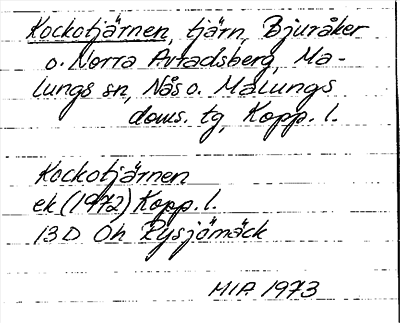 Kockotjärnen, tjärn, Bjuråker
o. Norra Avradsberg, Ma-
lungs sn, Nås o. Malungs
doms. tg, Kopp. l.
Kockotjärnen
ek (1972) Kopp. l.
13D 0h
MIA 1973